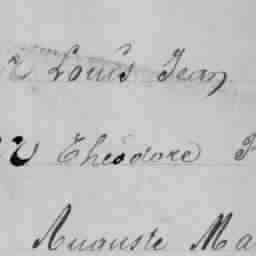 Louis Jean
Théodore
Auguste Ma